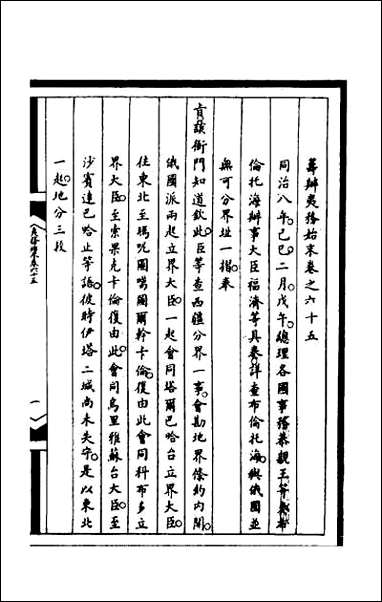 籌辦夷務始末卷之六十五
同治八年己巳二月戊午總理各國事務恭親王等奏布
倫托海辦事大臣福濟等具奏詳查布倫托海與俄國並
無可分界址一摺奉
旨該衙門知道欽此臣等查西疆分界一事會勘地界條約內開
俄國派兩起立界大臣一起會同塔爾巴哈台立界大臣
往東北至瑪呢圖噶圖爾幹卡倫復由此會同科布多立
界大臣至索果克卡倫復由此會同烏里雅蘇台大臣至
沙賓達巴哈止等語彼時伊塔二城尚未失守是以東北
一起地分三段
一